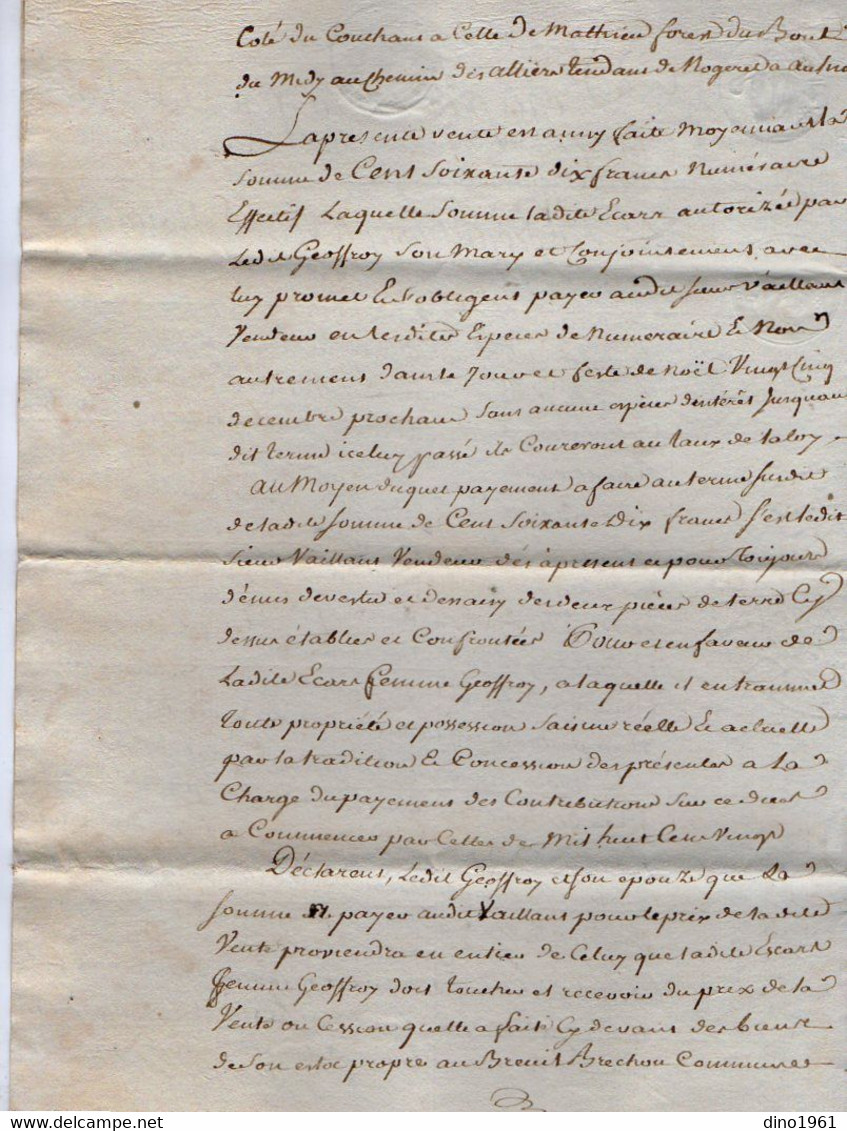 Coté du Couchant a Celle de Mathieu forest du Bout
du Midy au Chemin des alliers tendant de Nogeret a autre
La presente vente est aussy faite Moyennant la
Somme de Cent Soixante dix francs Numéraire
Effectif Laquelle Somme ladite Ecart autorizée par
Ledit Geoffroy Son Mary et Conjointement avec
luy promet Et Sobligent payer audit sieur Vaillant
Vendeur en lesdites Especes de Numeraire Et Non
autrement dans le Jour et feste de Noël Vingt Cinq
decembre prochain Sans aucune espèce dintérêt Jusquau
dit terme iceluy passé ils Coureront au taux de la loy
au Moyen duquel payement a faire au terme susdit
de ladite Somme de Cent Soixante Dix francs s'est ledit
Sieur Vaillant Vendeur dès àprésent et pour toujours
démis devestu et dessaisy des deux pièces de terre Cy
dessus établies et Confrontées Pour et en faveur de
Ladite Ecart femme Geoffroy, a laquelle il en transmet
toute propriété et possession Saisine réelle Et actuelle
par la tradition Et Concession des présentes a La
Charge du payement des Contributions Sur ce dues
a Commencer par Celles de Mil huit Cent Vingt
Déclarent, Ledit Geoffroy et son epouze que La
somme a payer audit Vaillant pour le prix de la dite
Vente proviendra en entier de Celuy que ladite Escart
femme Geoffroy doit toucher et recevoir du prix de la
Vente ou Cession quelle a faite Cy devant des biens
de Son estoc propre au Breuil Brechou Commune
dino1961